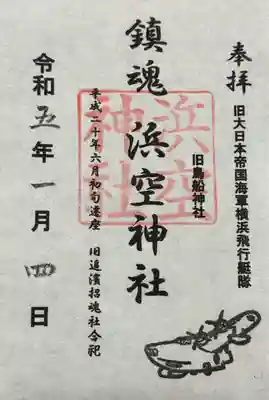 奉拝
旧大日本帝国海軍横浜飛行艇隊
旧鳥船神社
鎮魂 浜空神社
浜空
神社
平成二十年六月初旬遷座 旧追濱招魂社合祀
令和五年一月四日